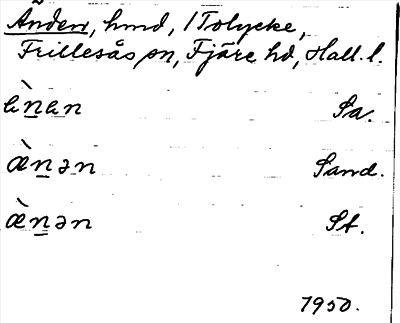 Änden, hmd, 1 Tolycke,
Frillesås sn, Fjäre hd, Hall. l.
Sa.
æ̀nən Sand.
æ̀nən St.
1950.